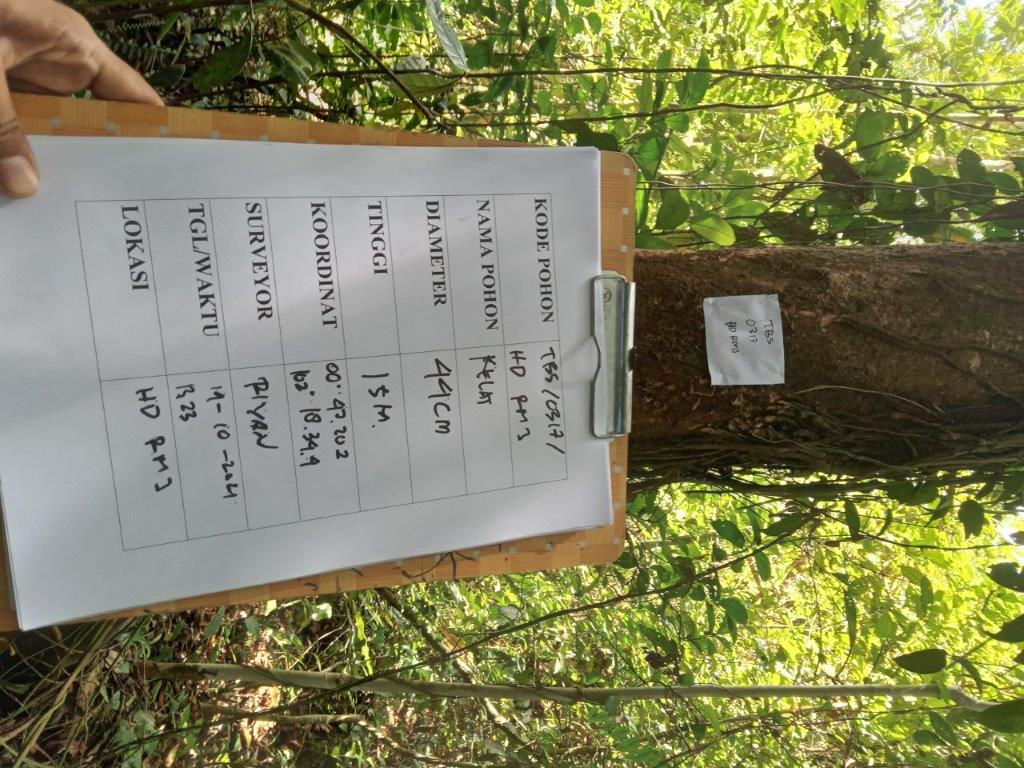 KODE POHON TBS/0317/
HD RM3
NAMA POHON KELAT
DIAMETER 44CM
TINGGI 15M.
KOORDINAT 00°.47.202
102°.18.34,9
SURVEYOR RIYAN
TGL/WAKTU 19-10-2021
13,23
LOKASI HD RM3
TBS
0317